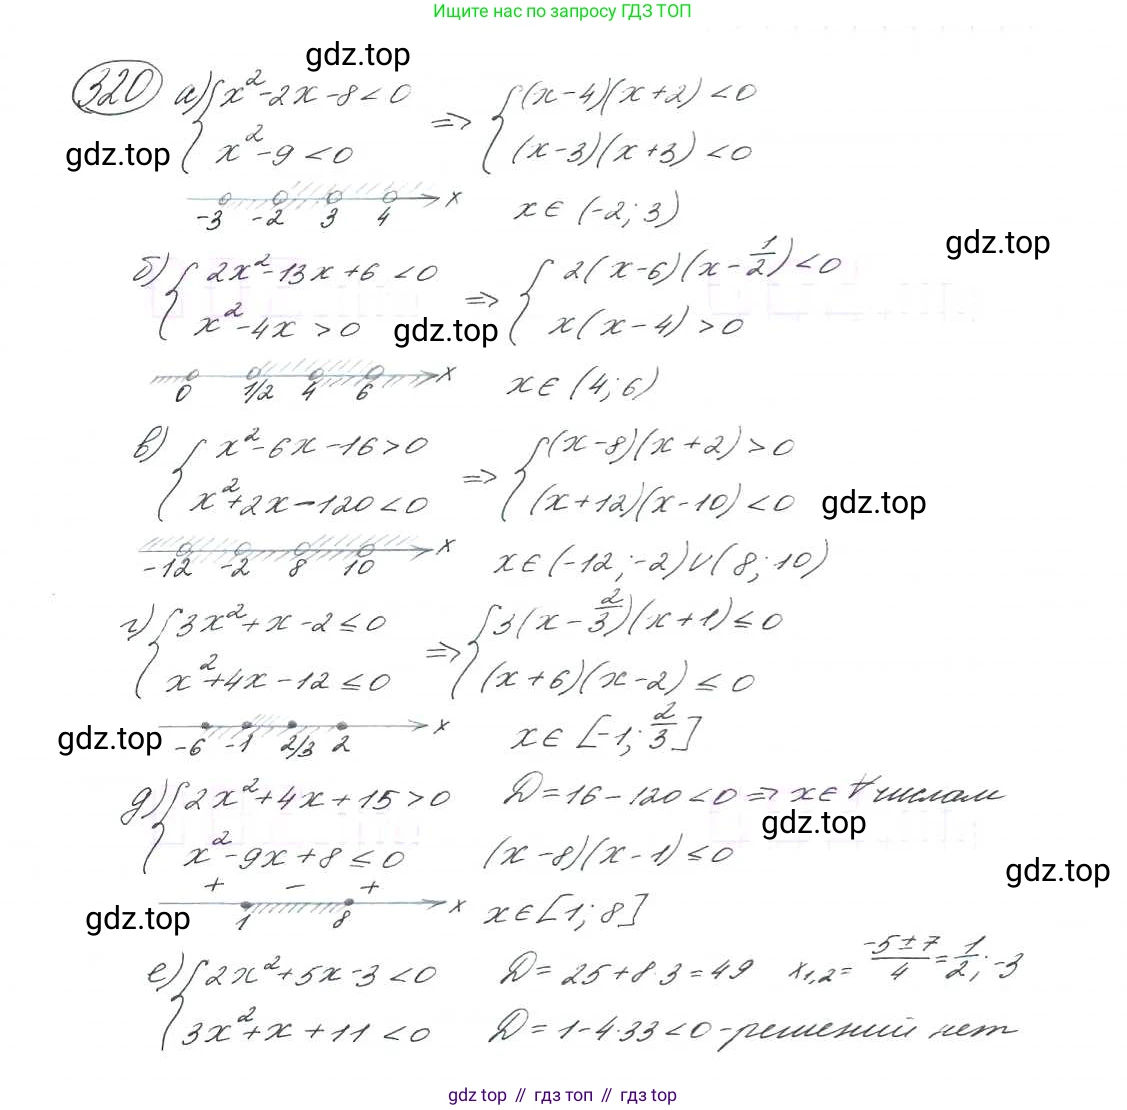 Ищите нас по запросу ГДЗ ТОП
gdz.top
320 а) { x² - 2x - 8 < 0 => { (x - 4)(x + 2) < 0
x² - 9 < 0 (x - 3)(x + 3) < 0
gdz.top
-3 -2 3 4 x x ∈ (-2; 3)
gdz.top
б) { 2x² - 13x + 6 < 0 => { 2(x - 6)(x - 1/2) < 0
x² - 4x > 0 x(x - 4) > 0
gdz.top
0 1/2 4 6 x x ∈ (4; 6)
в) { x² - 6x - 16 > 0 => { (x - 8)(x + 2) > 0
x² + 2x - 120 < 0 (x + 12)(x - 10) < 0
gdz.top
-12 -2 8 10 x x ∈ (-12; -2) ∪ (8; 10)
г) { 3x² + x - 2 ≤ 0 => { 3(x - 2/3)(x + 1) ≤ 0
x² + 4x - 12 ≤ 0 (x + 6)(x - 2) ≤ 0
gdz.top
-6 -1 2/3 2 x x ∈ [-1; 2/3]
д) { 2x² + 4x + 15 > 0 D = 16 - 120 < 0 => x ∈ ∀ числам
gdz.top
x² - 9x + 8 ≤ 0 (x - 8)(x - 1) ≤ 0
gdz.top
+ - +
gdz.top
1 8 x x ∈ [1; 8]
е) { 2x² + 5x - 3 < 0 D = 25 + 8·3 = 49 x₁,₂ = (-5 ± 7)/4 = 1/2; -3
3x² + x + 11 < 0 D = 1 - 4·33 < 0 - решений нет
gdz.top // гдз топ // гдз.top